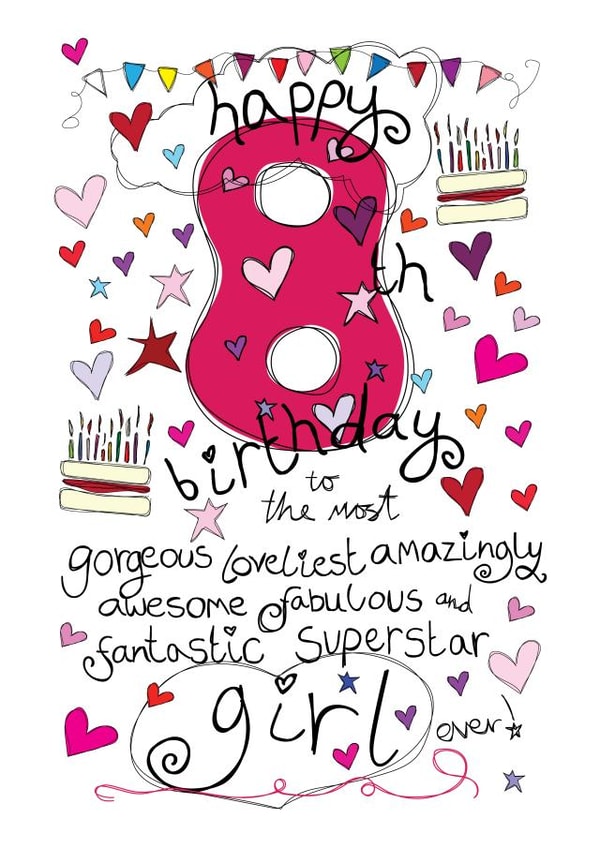 happy
8th
birthday
to
the most
gorgeous loveliest amazingly
awesome fabulous and
fantastic superstar
girl
ever!